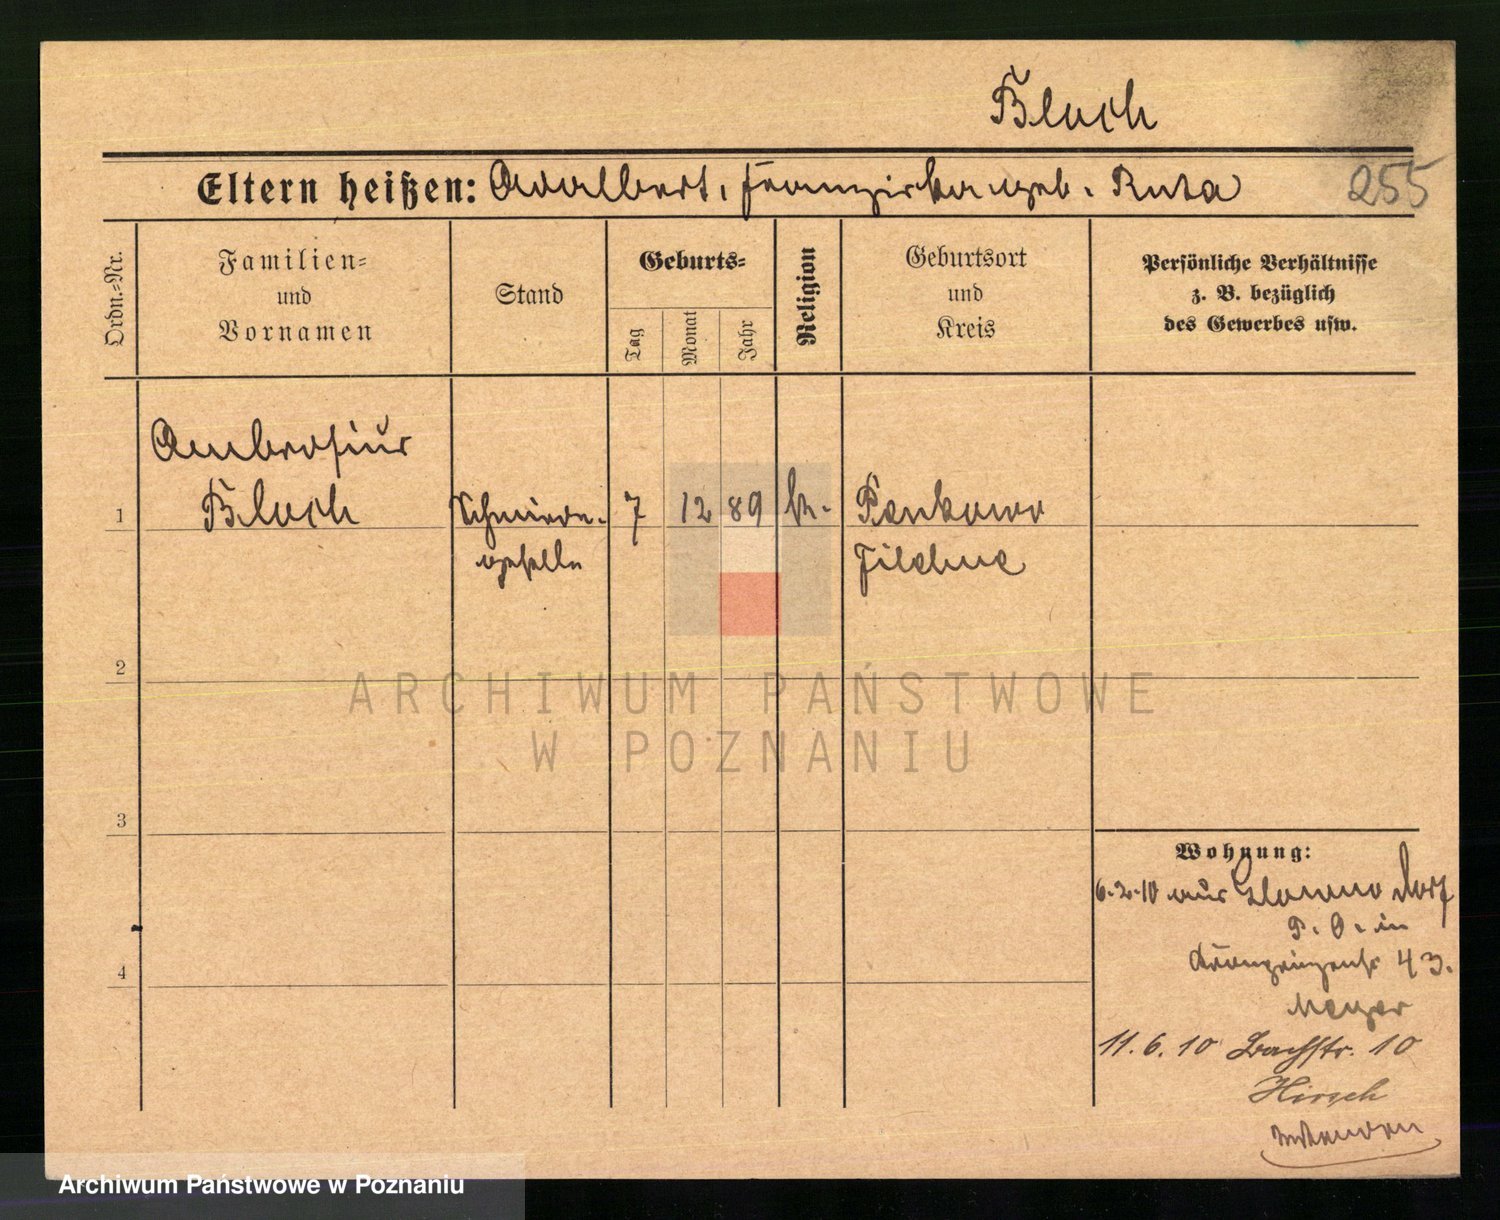 Bloch
Eltern heißen: Adalbert, Franziska geb. Ruta
255
Ordn.=Nr.
Familien=
und
Vornamen
Stand
Geburts=
Tag
Monat
Jahr
Religion
Geburtsort
und
Kreis
Persönliche Verhältnisse
z. B. bezüglich
des Gewerbes usw.
Ambrosius
1 Bloch
Schmiede-
geselle
7 12 89 k.
Penkowo
Filehne
2
3
4
Wohnung:
6.2.10 aus dorf
P. O. in
Kronprinzenstr 43.
Meyer
11.6.10 Bachstr. 10
Hirsch
ARCHIWUM PAŃSTWOWE
W POZNANIU
Archiwum Państwowe w Poznaniu